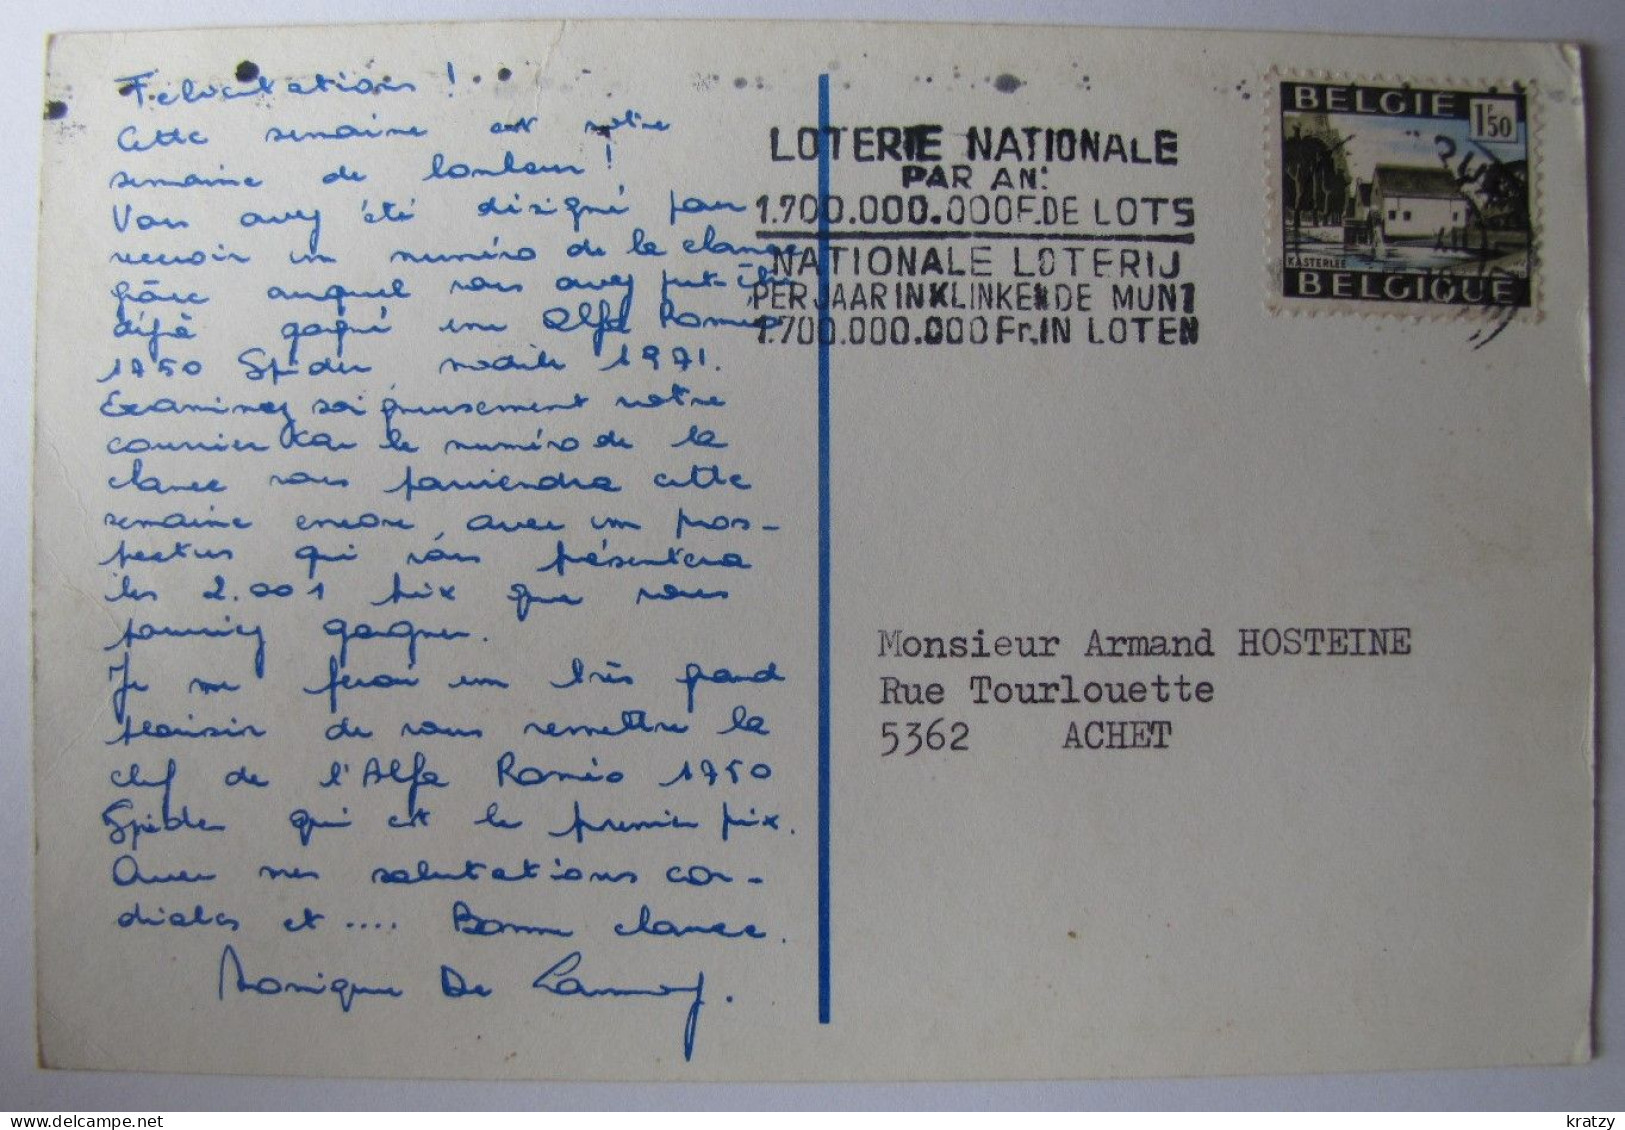 Félicitations !
Cette semaine est votre
semaine de bonheur !
Vous avez été désigné pour
recevoir un numéro de la chance
grâce auquel vous avez peut-être
déjà gagné une Alfa Romeo
1750 Spider modèle 1971.
Examinez soigneusement votre
courrier car le numéro de la
chance vous parviendra cette
semaine encore, avec un pros-
pectus qui vous présentera
les 2.001 prix que vous
pourriez gagner.
Je me ferai un très grand
plaisir de vous remettre la
clef de l'Alfa Roméo 1750
Spider qui est le premier prix.
Avec mes salutations cor-
diales et .... Bonne chance.
Monique De Lannoy.
LOTERIE NATIONALE
PAR AN:
1.700.000.000F.DE LOTS
NATIONALE LOTERIJ
PER JAAR IN KLINKENDE MUNT
1.700.000.000 Fr.IN LOTEN
BELGIE
1F50
KASTERLEE
BELGIQUE
Monsieur Armand HOSTEINE
Rue Tourlouette
5362 ACHET
kratzy